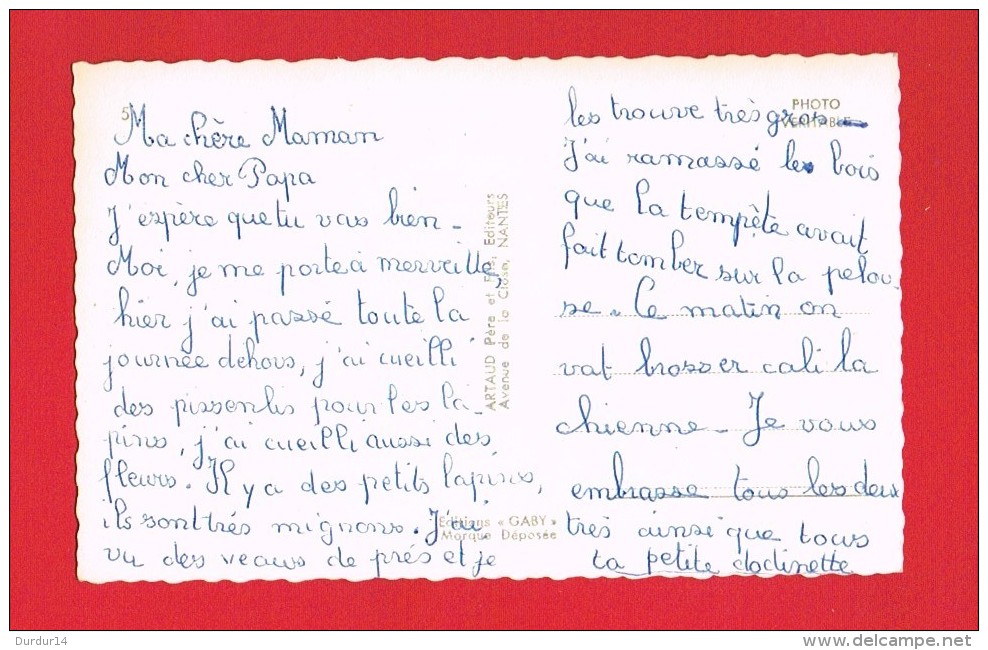 5
Ma chère Maman
Mon cher Papa
J'espère que tu vas bien -
Moi, je me porte à merveille,
hier j'ai passé toute la
journée dehors, j'ai cueilli
des pissenlis pour les la-
pins, j'ai cueilli aussi des
fleurs. Il y a des petits lapins,
ils sont très mignons. J'ai
vu des veaus de prés et je
ARTAUD Père et Fils, Editeurs
Avenue de la Close, NANTES
Editions « GABY »
Marque Déposée
PHOTO
VÉRITABLE
les trouve très gros
J'ai ramassé le bois
que la tempête avait
fait tomber sur la pelou-
se. Ce matin on
vat brosser cali la
chienne - Je vous
embrasse tous les deux
très ainsi que tous
ta petite clodinette
Durdur14
www.delcampe.net